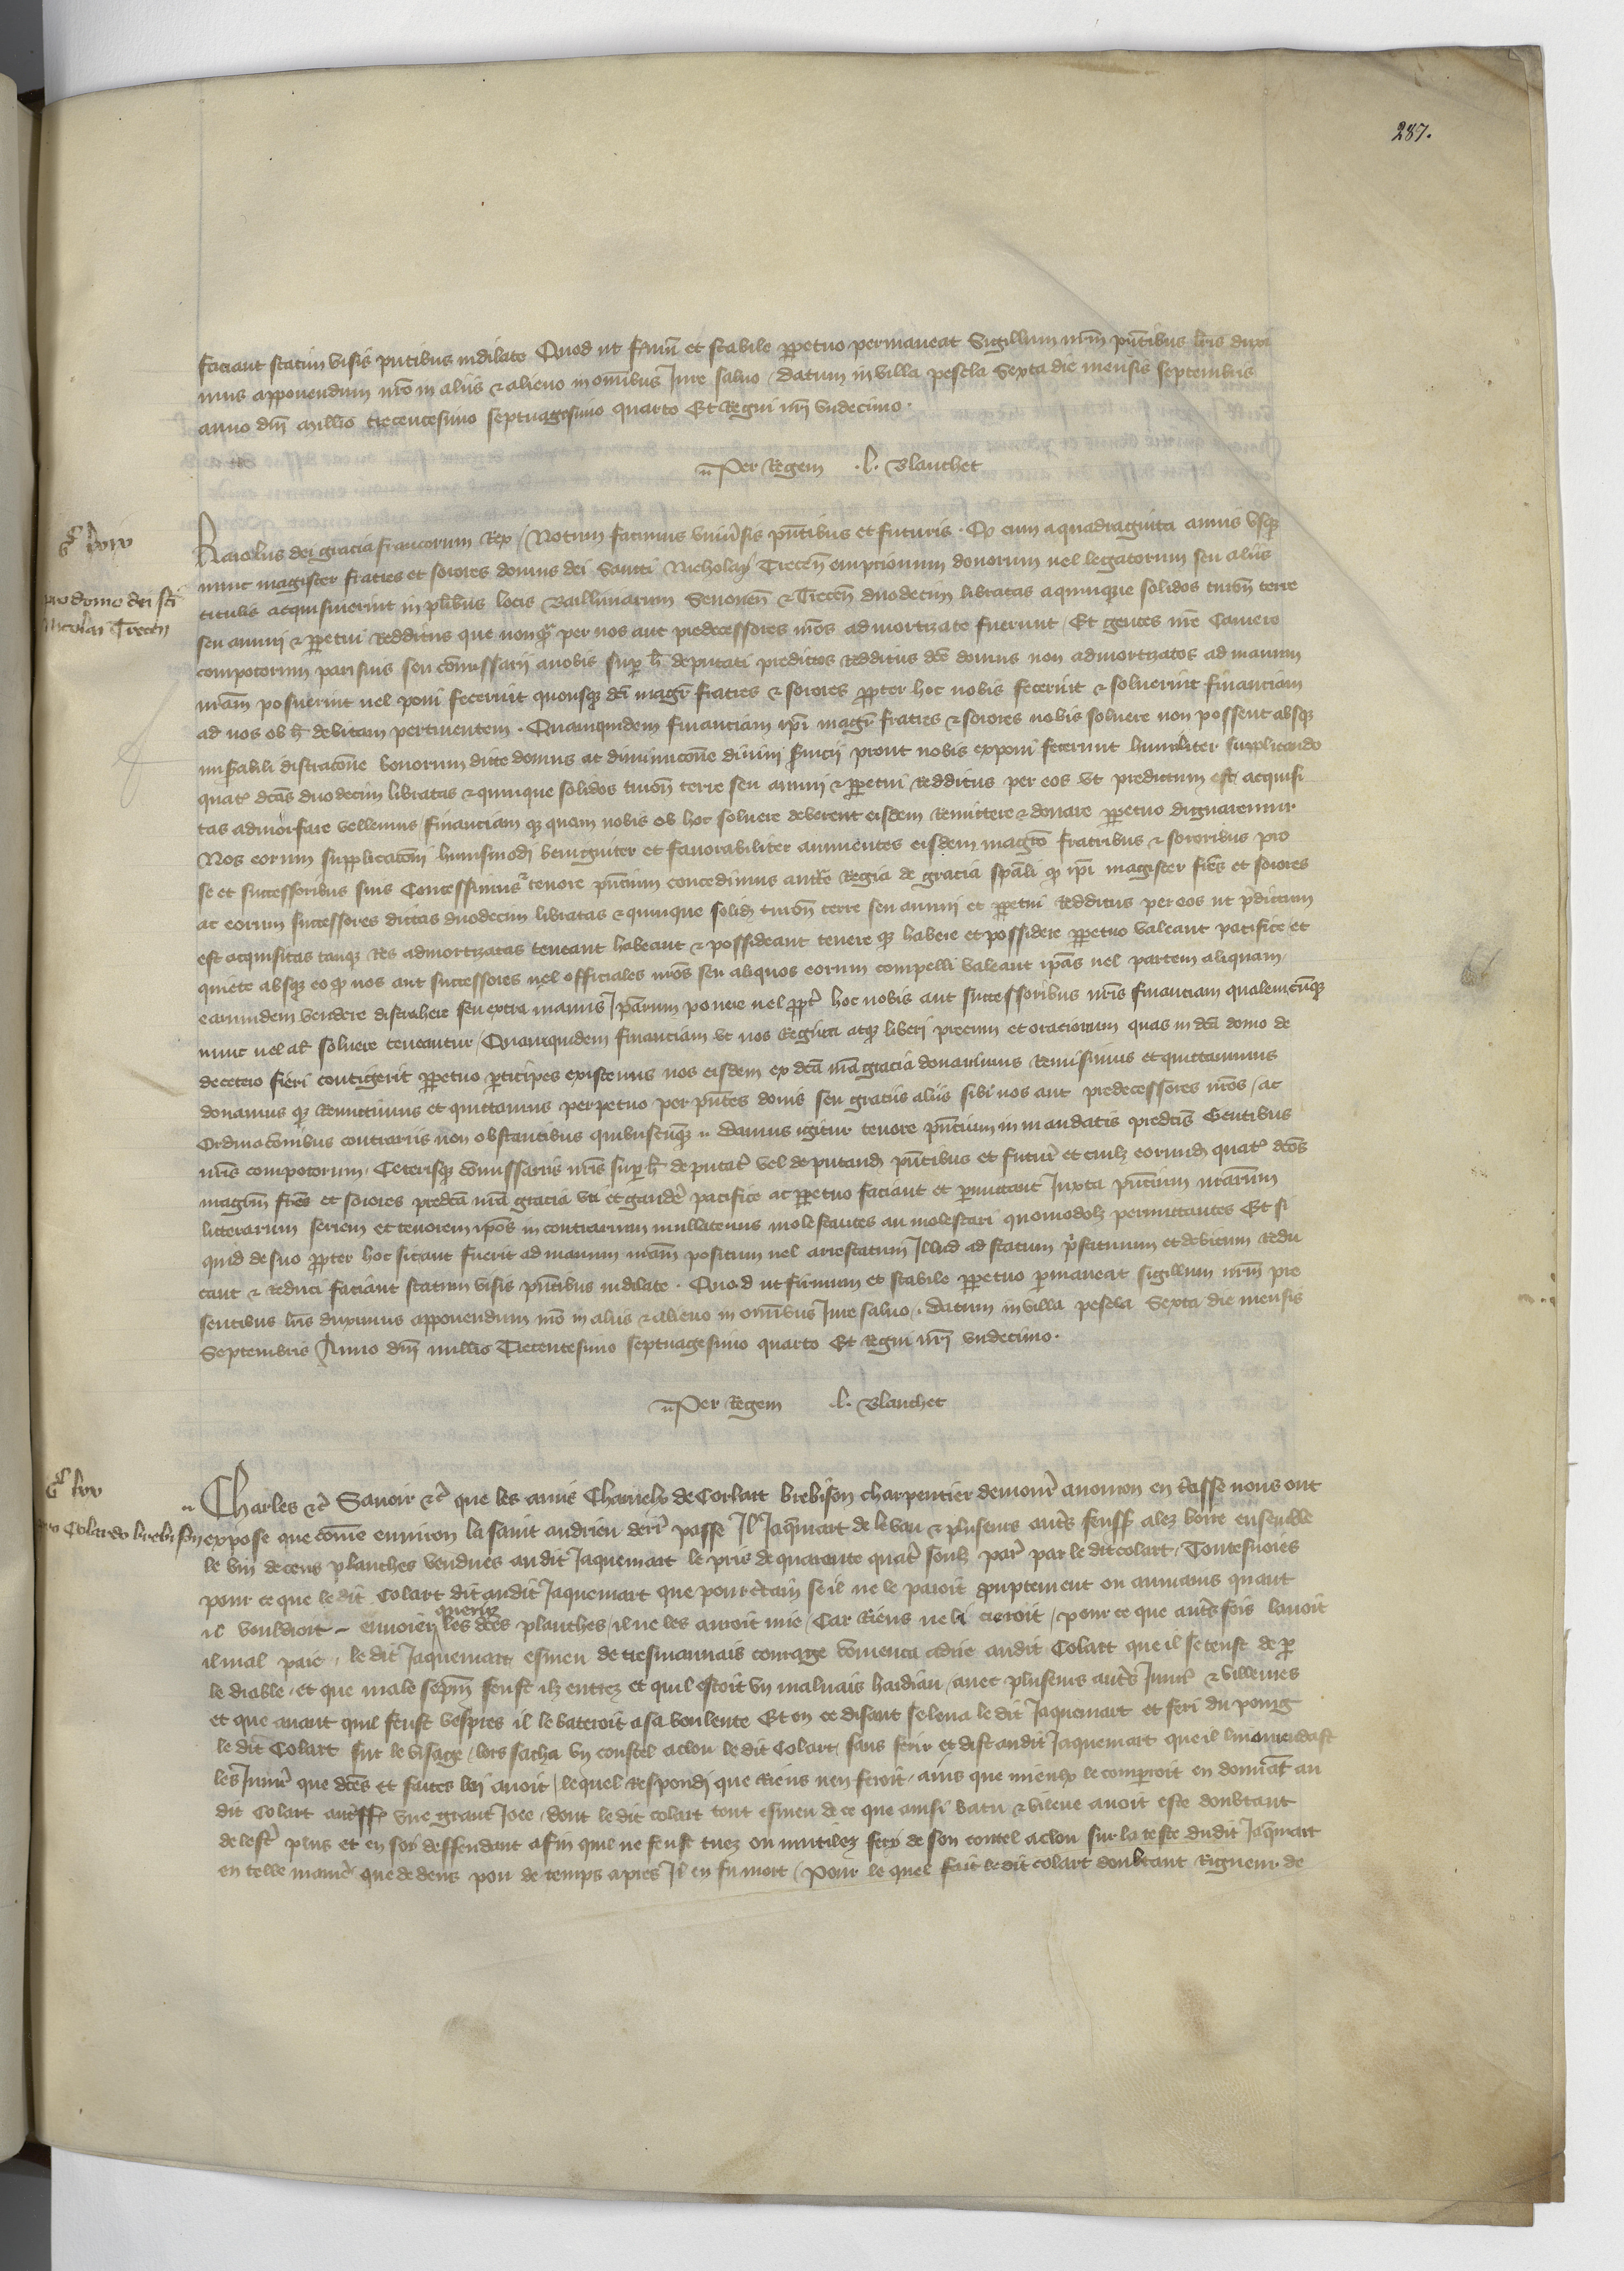 287.
faciant statim visis pntibus indilate Quod ut firmũ et stabile ppetuo permaneat Sigillum nrm pntibus lris duxi
mus apponendum nro in aliis & alieno in omnibus Jure salvo / datum in villa pescla Sexta die mensis septembris
anno dni millio trecentesimo septuagesimo quarto Et Regni nri undecimo.
Per Regem .l. Blanchet
pro domo dei sci
Nicolai Trecen
Karolus dei gracia francorum Rex / Notum facimus universis pntibus et futuris. Qd cum a quadraginta annis usq
nunc magister fratres et sorores domus dei Sancti Nicholay Trecen empcionum donorum vel legatorum seu aliis
titulis acquisiverint in plibus locis Bailliviarum Senonen & Trecen duodecim libratas a quinque solidos turon terre
seu annui & ppetui Redditus que nonq per nos aut predecessores nros admortizate fuerunt / Et gentes nre Camere
compotorum parisius seu comissarii a nobis sup h deputati predictos redditus dce domus non admortizatos ad manum
nram posuerint vel poni fecerint quousq dci magr fratres & sorores ppter hoc nobis fecerint & solverint financiam
ad nos ob h debitam pertinentem. Quamquidem financiam ipi magr fratres & sorores nobis solvere non possent absq
miserabili distractone bonorum dicte domus ac diminucone divini servicii prout nobis exponi fecerunt humiliter supplicando
quatr dcas duodecim libratas & quinque solidos turon terre seu annui & ppetui Redditus per eos ut predictum est acquisi
tas admortisare vellemus financiam q quam nobis ob hoc solvere deberent eisdem Remittere & donare ppetuo dignaremur
Nos eorum supplicatoni huiusmodi benigniter et favorabiliter annuentes eisdem magro fratribus & sororibus pro
se et successoribus suis Concessimus & tenore pntium concedimus auctte Regia de gracia spali q ipi magister fres et sorores
ac eorum successores dictas duodecim libratas & quinque solid turon terre seu annui et ppetui Redditus per eos ut pdictum
est acquisitas tanq Res admortizatas teneant habeant & possideant tenere q habere et possidere ppetuo valeant pacifice et
quiete absq eo q nos aut successores vel officiales nros seu aliquos eorum compelli valeant ipas vel partem aliquam
earumdem vendere distrahere seu extra manus Iparum ponere vel ppt hoc nobis aut successoribus nris financiam qualemcumq
nunc vel al solvere teneantur / Quamquidem financiam ut nos Regina atq liberi precum et oracionum quas in dca domo de
decetero fieri contigerit ppetuo pticipes existemus nos eisdem ex dca nra gracia donavimus Remisimus et quittavimus
donamus q Remittimus et quittamus perpetuo per pntes donis seu graciis aliis sibi nos aut predecessores nros / ac
Ordinacionibus contrariis non obstantibus quibuscumq. Damus igitur tenore pntium in mandatis predcis Gentibus
nris compotorum. Ceterisq comissariis nris sup h deputat vel deputand pntibus et futur et cuilz eorumd quat dcos
magrm fres et sorores predca nra gracia uti et gaudere pacifice ac ppetuo faciant et pmittant Juxta pntium nrarum
litterarum seriem et tenorem ipos in contrarium nullatenus molestantes au molestari quomodolz permittantes Et si
quid de suo ppter hoc sicant fuerit ad manum nram positum vel arrestatum Illud ad statum pstatinum et debitum redu
cant & Reduci faciant statim visis pntibus indilate. Quod ut firmum et stabile ppetuo pmaneat sigillum nrm pre
sentibus lris duximus apponendum nro in aliis & alieno in omnibus Jure salvo. datum in villa pescla Sexta die mensis
Septembris Anno dni millio Trecentesimo septuagesimo quarto Et Regni nri undecimo.
Per Regem .l. Blanchet
pro Colardo brebison
Charles &c Savoir &c que les amis Charnelz de Colart brebison charpentier demour a nouion en terasse nous ont
expose que come environ la saint andrieu derr passe Il Jaqmart de levau & plusieurs autres feuss alez boire ensemble
le vin de cens planches vendues au dit Jaquemart le pris de quarante quatr soulz par par le dit colart. Toutesvoies
pour ce que le dit Colart dit audit Jaquemart que pour certain se il ne le paioit promptement ou au mains quant
il vouldroit envoier querir les dces planches / il ne les auroit mie / Car Riens ne li creroit / pour ce que autres fois lavoit
il mal paie. le dit Jaquemart esmeu de tresmauvais courage comenca a dire audit Colart que il se teust de p
le diable. et que male sepm feust ilz entrez et quil estoit un malvais hardiau / avec plusieurs autres Injur & villenies
et que avant quil feust vespres il le bateroit a sa voulente Et en ce disant se leva le dit Jaquemart et feri du poing
le dit Colart sur le visage / lors sacha un coustel a clou le dit Colart. sans ferir et dist audit Jaquemart que il li amendast
les Injur que dces et faites lui avoit / lequel Respondi que Riens nen feroit. ains que mieulx le comperroit en donnant au
dit Colart une grant Joee. dont le dit colart tout esmeu de ce que ainsi batu & vilene avoit este doubtant
de lestr plus et en soy deffendant afin quil ne feust tuez ou mutilez fery de son coutel a clou sur la teste dudit Jaqmart
en telle manre que dedens pou de temps apres Il en fu mort / Pour le quel fait le dit colart doubtant Rigueur de